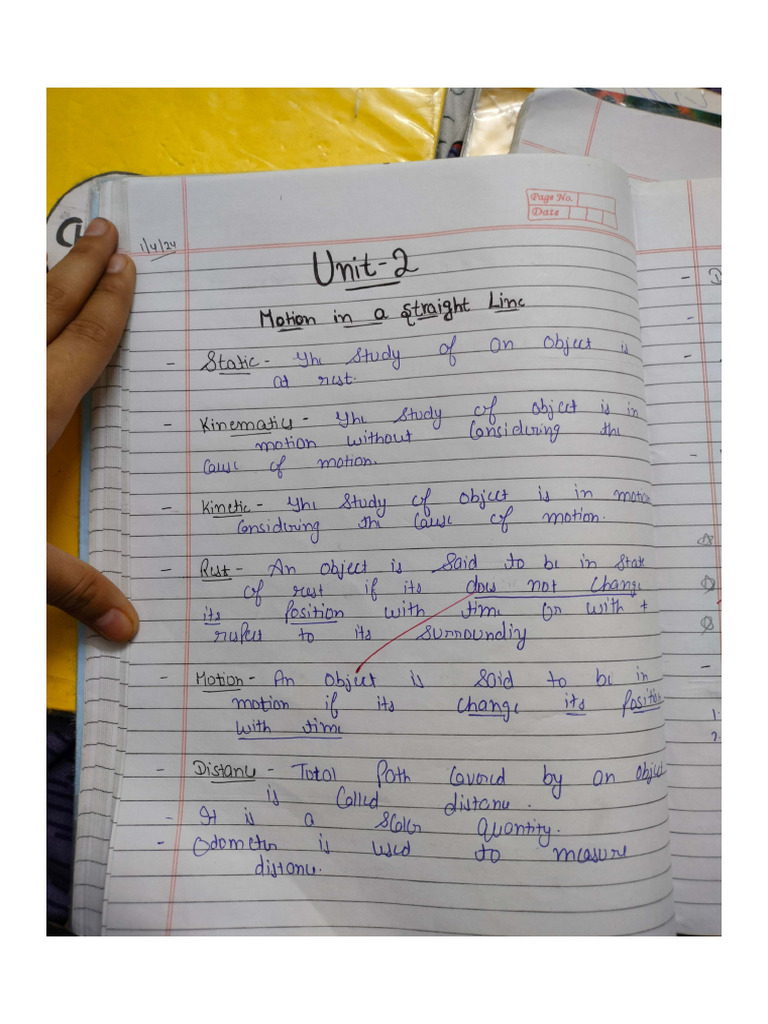 Page No.
Date
1/4/24
Unit-2
Motion in a Straight Line
- Static - The study of an object is
at rest.
- Kinematics - The study of object is in
motion without considering the
cause of motion.
- Kinetic - The study of object is in motion
considering the cause of motion.
- Rest - An object is said to be in state
of rest if its does not change
its position with time or with +
respect to its surrounding
- Motion - An object is said to be in
motion if its change its position
with time
- Distance - Total Path covered by an object
is called distance.
- It is a scaler quantity.
- Odometer is used to measure
distance.